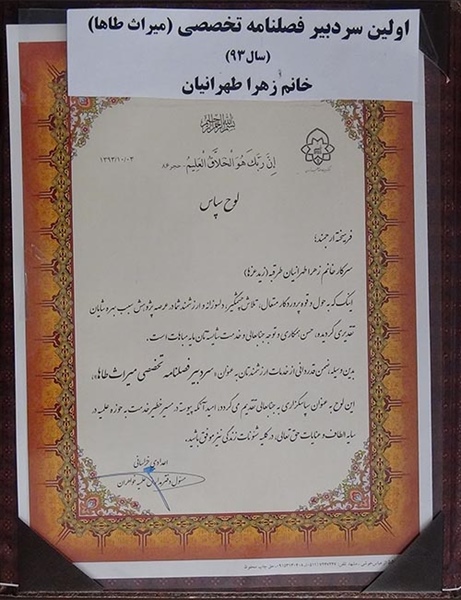 اولین سردبیر فصلنامه تخصصی (میراث طاها)
(سال ۹۳)
خانم زهرا طهرانیان
بسم الله الرحمن الرحیم
إِنَّ رَبَّكَ هُوَ الْخَلَّاقُ الْعَلِيمُ - حجر ۸۶
۱۳۹۳/۱۰/۰۳
لوح سپاس
فریخته ارجمند؛
سرکار خانم زهرا طهرانیان طرقبه (زید عزها)
اینک که به حول و قوه پروردگار متعال، تلاش چشمگیر، دلسوزانه و ارزشمند شما در عرصه پژوهش سبب بهره شایان
تقدیری گردیده، حسن همکاری و توجه جنابعالی و خدمت شایسته‌تان مایه مباهات است.
بدین وسیله ضمن قدردانی از خدمات ارزشمندتان به عنوان «سردبیر فصلنامه تخصصی میراث طاها»،
این لوح به عنوان سپاسگزاری به جنابعالی تقدیم می گردد، امید آنکه پیوسته در مسیر خطیر خدمت به حوزه علمیه در
سایه الطاف و عنایات حق تعالی، در کلیه شئونات زندگی نیز موفق باشید.
اعدادی خراسانی
مسئول دفتر علمیه خواهران